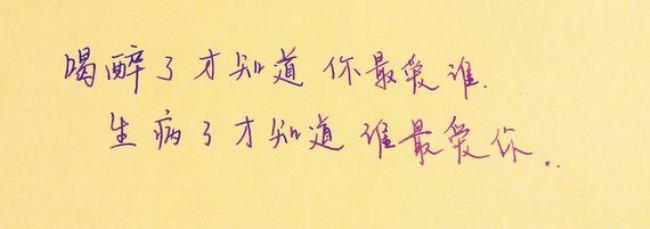 喝醉了才知道你最爱谁.
生病了才知道谁最爱你..